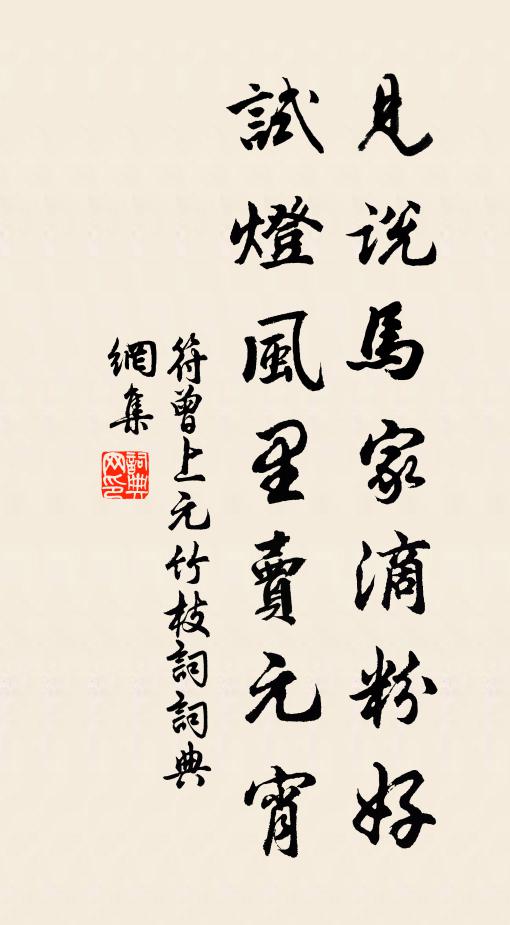 見说馬家滴粉好
試燈風里賣元宵
符曾上元竹枝詞詞典
網集
詞典网印